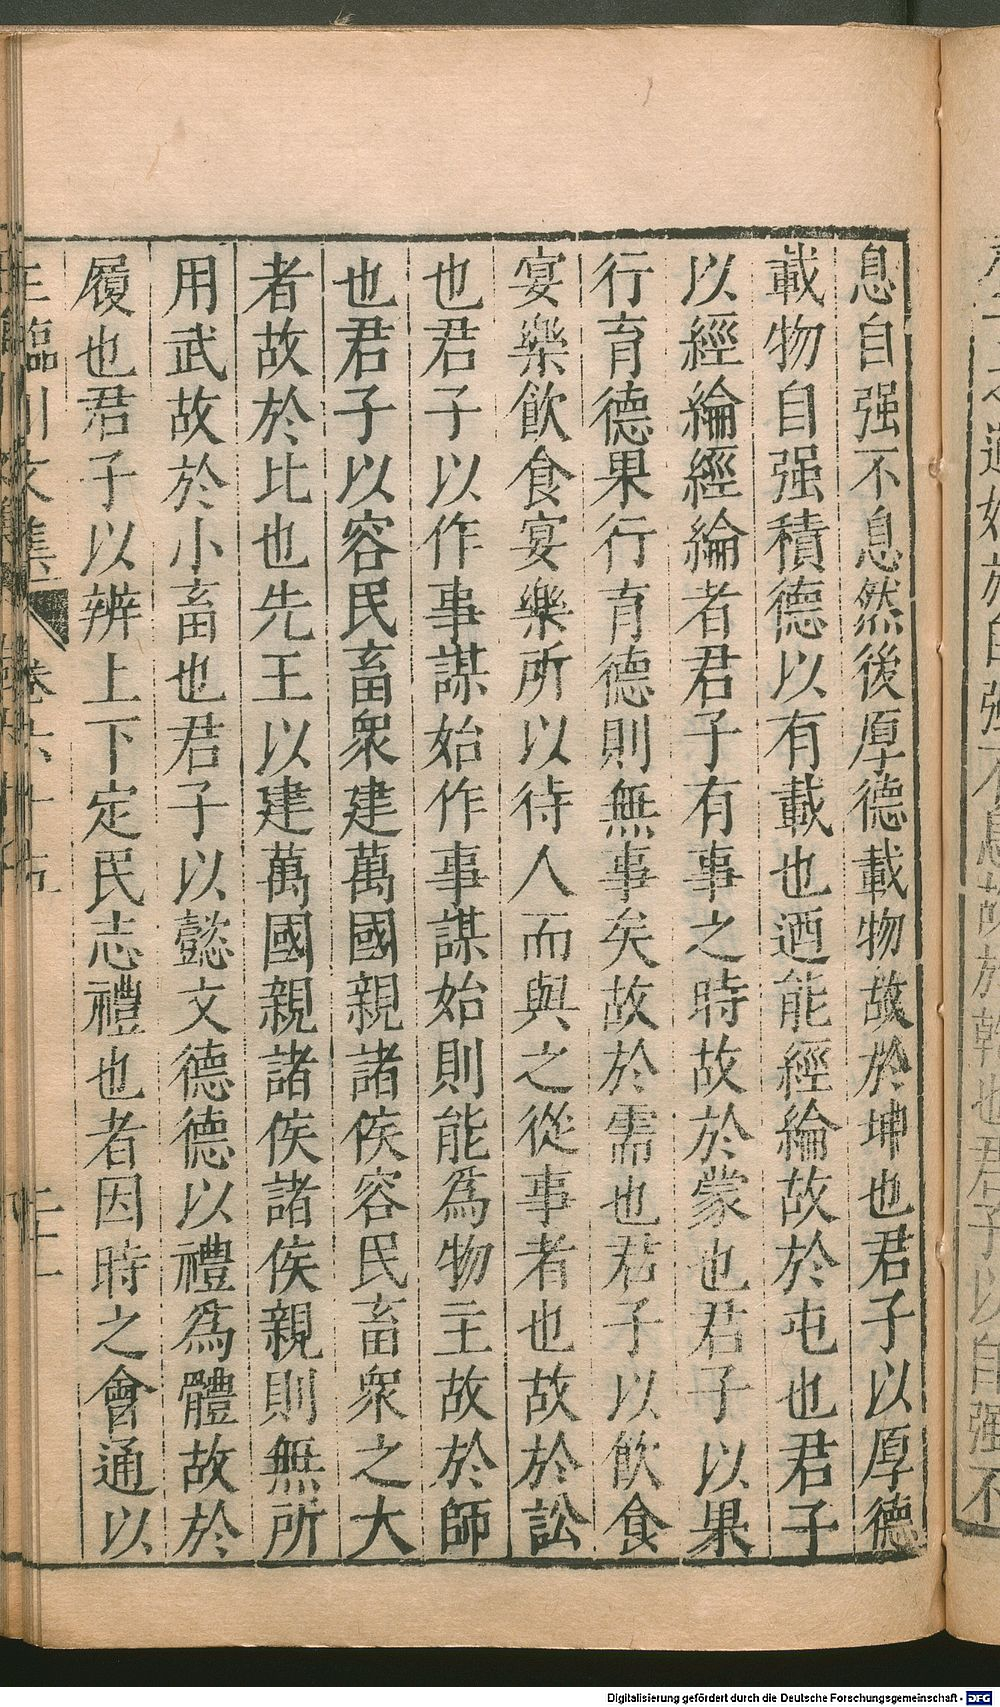 之道始於自强不息故於乾也君子以自强不
息自强不息然後厚德載物故於坤也君子以厚德
載物自强積德以有載也迺能經綸故於屯也君子
以經綸經綸者君子有事之時故於蒙也君子以果
行育德果行育德則無事矣故於需也君子以飲食
宴樂飲食宴樂所以待人而與之從事者也故於訟
也君子以作事謀始作事謀始則能爲物主故於師
也君子以容民畜衆建萬國親諸侯容民畜衆之大
者故於比也先王以建萬國親諸侯諸侯親則無所
用武故於小畜也君子以懿文德德以禮爲體故於
履也君子以辨上下定民志禮也者因時之會通以
王臨川文集 卷六十五 二十一
Digitalisierung gefördert durch die Deutsche Forschungsgemeinschaft - DFG